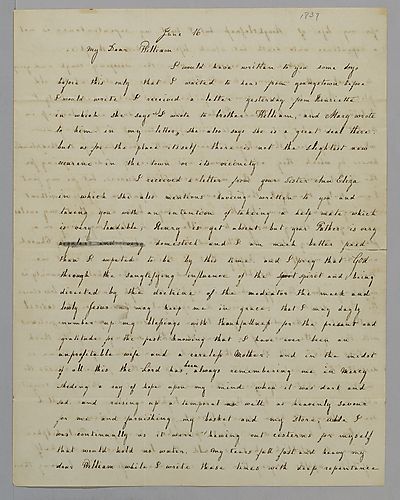 1837
June 16
My Dear William
I would have written to you some days
before this only that I waited to hear from youngstown before
I would write I received a letter yesterday from Henrietta
in which she says I wrote to brother William, and Mary wrote
to him in my letter, she also says she is a great deal there
but as for the place itself there is not the slightest new
in the town or its vicinity
I received a letter from your Sister Ann Eliza
in which she also mentions having written to you and
you with an intention of takeing a help mate which
is very laudable, Henry is yet absent but your Father is very
domestick and I am much better
than I expected to be by this time and I pray that God
through the sanctyfying influence of the spirit and being
directed by the doctrine of the mediator the meek and
lowly Jesus may keep me in grace that I may dayly
number up my blessings with thankfullness for the present and
gratitude for the past knowing that I have ever been an
unprofitable wife and a careless Mother and in the midst
of all this the Lord has been always remembering me in Mercy
sheding a ray of hope upon my mind when it was dark and
sad and raising up a temporal as well as heavenly saviour
for me and furnishing my basket and my store, while I
was continually as it were hewing out cesterns for myself
that would hold no water. My tears fall fast and heavy my
dear William while I write these lines with deep repentance